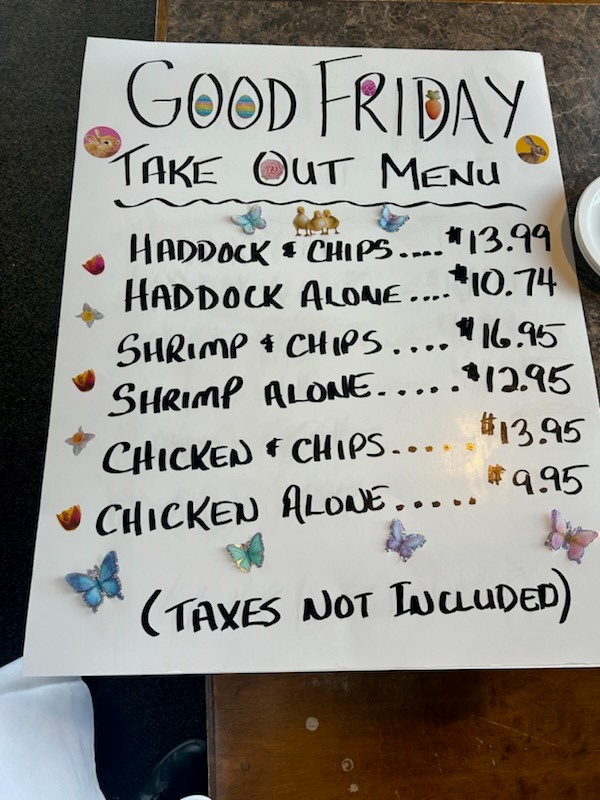 GOOD FRIDAY
TAKE OUT MENU
HADDOCK & CHIPS.... $13.99
HADDOCK ALONE.... $10.74
SHRIMP & CHIPS.... $16.95
SHRIMP ALONE..... $12.95
CHICKEN & CHIPS..... $13.95
CHICKEN ALONE..... $9.95
(TAXES NOT INCLUDED)